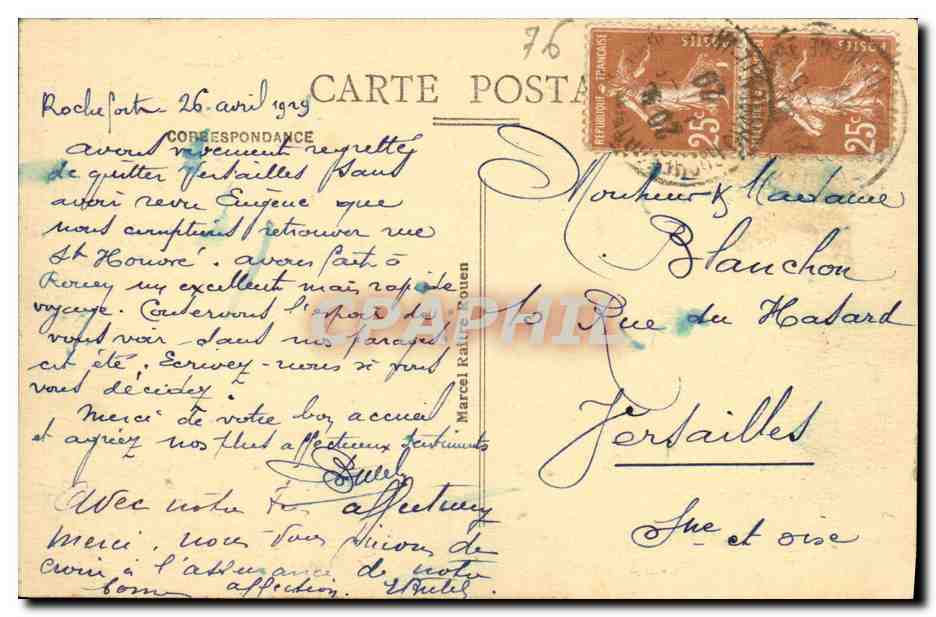 76
CARTE POSTA
Rochefort 26 avril 1929
CORRESPONDANCE
avons vivement regretté
de quitter Versailles sans
avoir revu Eugène que
nous comptions retrouver rue
St Honoré. avons fait à
Rouen un excellent mais rapide
voyage. Conservons l'espoir de
vous voir dans nos parages
cet été. Ecrivez-nous si vous
vous décidez
Merci de votre bon accueil
et agréez nos plus affectueux sentiments
Avec notre affectueux
merci, nous vous prions de
croire à l'assurance de notre
bonne affection.
Marcel Raitre Rouen
REPUBLIQUE FRANÇAISE
POSTES
25c
POSTES
25c
Monsieur & Madame
Blanchon
10 Rue du Hasard
Versailles
Sne et oise
CPAPHIL